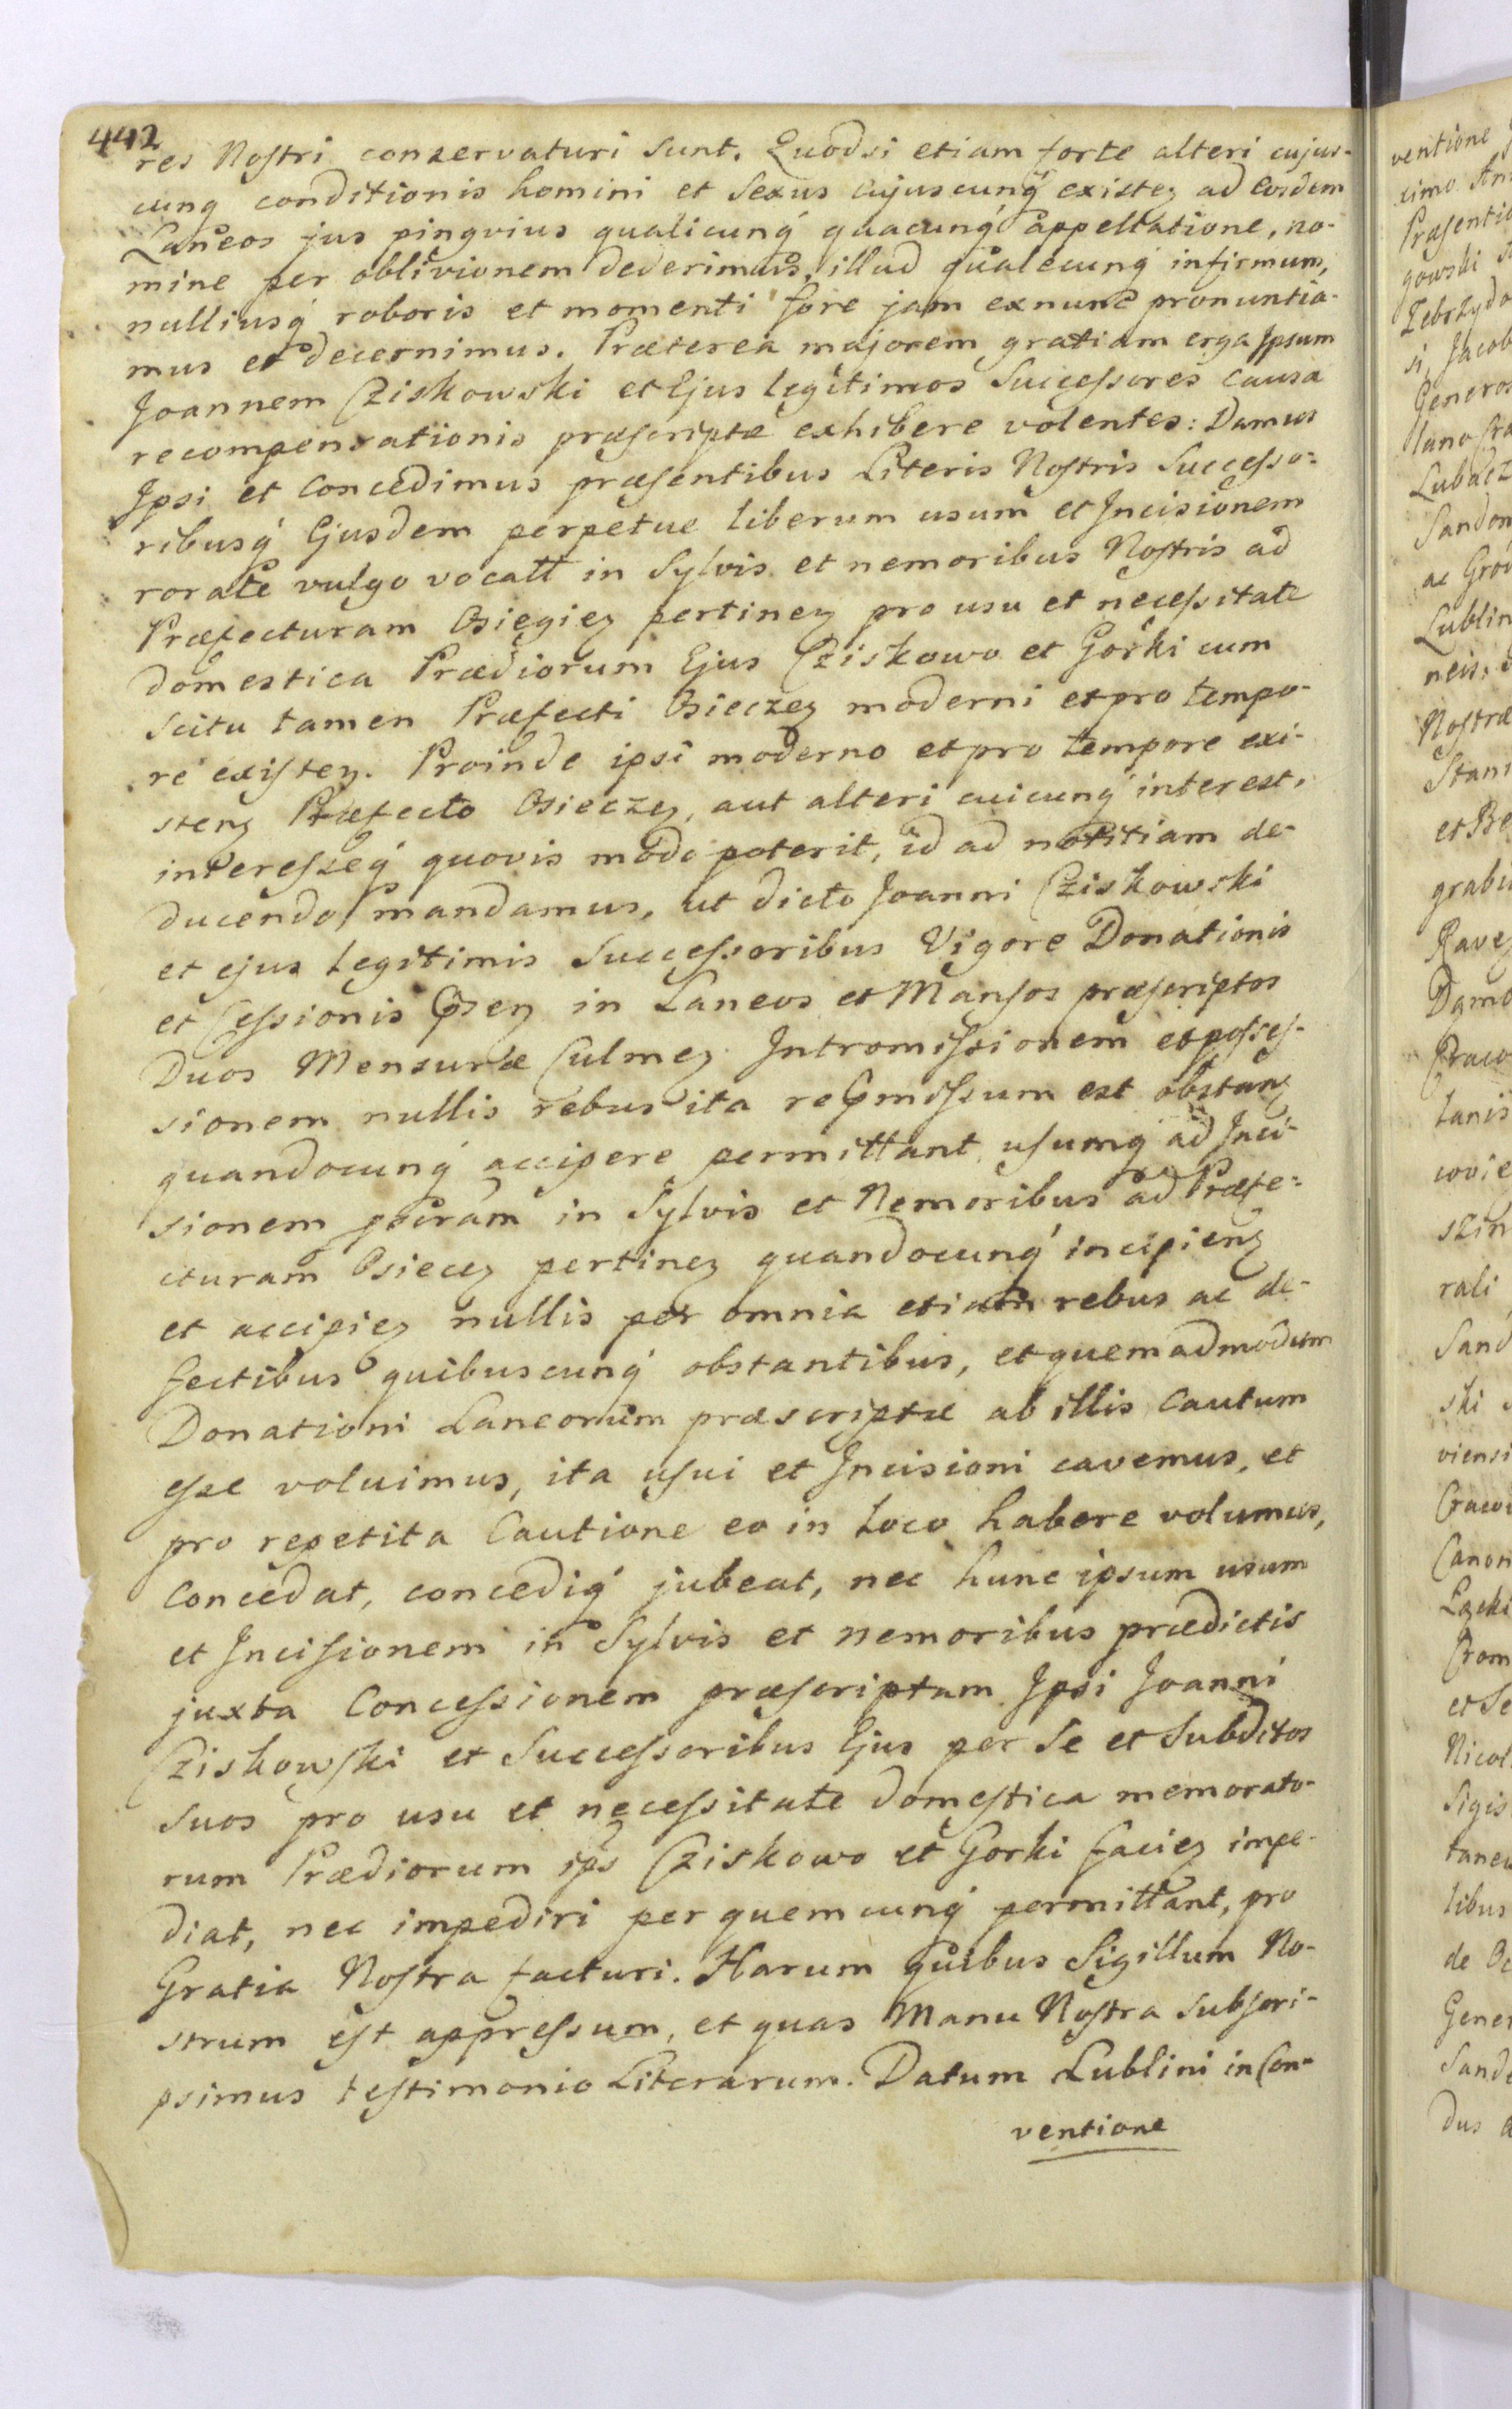 442
res Nostri conservaturi sunt. Quodsi etiam forte alteri cujus-
cunq conditionis homini et sexus cujuscunq́ existeɳ ad Eosdem
Laneos jus pingvius qualicunq́ quacunq́ appellatione, no-
mine per oblivionem dederimus, illud qualecunq́ infirmum,
nulliusq́ roboris et momenti fore jam exnunc pronuntia-
mus et decernimus. Præterea majorem gratiam erga Ipsum
Joannem Cziskowski et Ejus legitimos Successores causa
recompensationis præscriptæ exhibere volentes: Damus
Ipsi et Concedimus præsentibus Literis Nostris Successo-
ribusq́ Ejusdem perpetue liberum usum et Incisionem
rorate vulgo vocatt in Sylvis et nemoribus Nostris ad
Præfecturam Osiegieɳ pertineɳ pro usu et necessitate
domestica Prædiorum Ejus Cziskowo et Gorki cum
scitu tamen Præfecti Osieczeɳ moderni et pro tempo-
re existeɳ. Proinde ipsi moderno et pro tempore exi-
steɳ Præfecto Osieczeɳ, aut alteri cuicunq́ interest,
interesseq́ quovis modo poterit, id ad notitiam de-
ducendo mandamus, ut dicto Joanni Cziskowski
et ejus legitimis Successoribus Vigore Donationis
et Cessionis in Laneos et Mansos præscriptos
Duos Mensuræ Culmeɳ Intromissionem et posses-
sionem nullis rebus ita est obstanɳ
quandocunq́ accipere permittant, usumq́ ad Inci-
sionem in Sylvis et Nemoribus ad Præfe-
cturam Osieceɳ pertineɳ quandocunq́ incipienɳ
et accipieɳ nullis per omnia etiam rebus ac de-
fectibus quibuscunq́ obstantibus, et quemadmodum
Donationi Laneorum præscriptæ ab illis Cautum
esse voluimus, ita usui et Incisioni cavemus, et
pro repetita Cautione eo in loco habere volumus,
Concedat, concediq́ jubeat, nec hunc ipsum usum
et Incisionem in Sylvis et nemoribus prædictis
juxta Concessionem præscriptam Ipsi Joanni
Cziskowski et Successoribus Ejus per Se et Subditos
Suos pro usu et necessitate domestica memorato-
rum Prædiorum ips Cziskowo et Gorki facieɳ impe-
diat, nec impediri per quemcunq́ permittant, pro
Gratia Nostra facturi. Harum quibus Sigillum No-
strum est appressum, et quas Manu Nostra subscri-
psimus testimonio Literarum. Datum Lublini in Con-
ventione
ventione
ximo
Præsentib
gowski
Zebrzydo
si, Jacob
Generos
lano Cra
Lubacz
Sandom
ac Grod
Lublin
neis,
Nostræ
Stani
et Bre
grabu
Raveɳ
Damo
Craco
tanis
covie
szin
rali
Sand
ski
viensi
Cracov
Canon
Lacki
Crom
et Se
Nicol
Sigis
taneu
libus
de Oc
Gener
Sando
dus a